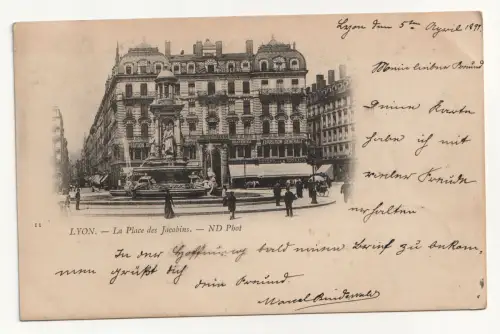 Lyon den 5ten April 1899.
Mein lieber Freund
Deine Karte
habe ich mit
vieler Freude
erhalten
11
LYON. — La Place des Jacobins. — ND Phot
In der Hoffnung bald einen Brief zu bekom-
men grüßt dich dein Freund.
Marcel